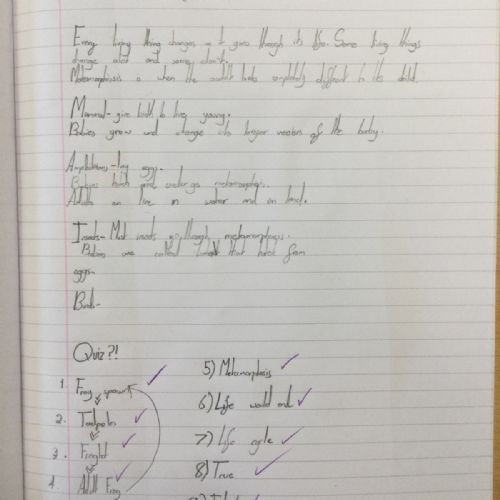 Every living thing changes as it goes through its life. Some living things
change alot and some don't.
Metamorphosis is when the adult looks completely different to its child.
Mammal- give birth to live young.
Babies grow and change into larger version of the baby.
Amphibians- lay eggs.
Babies hatch and undergo metamorphosis.
Adults can live in water and on land.
Insects- Most insects go through metamorphosis.
Babies are called that hatch from
eggs-
Birds-
Quiz?!
1. Frog spawn
2. Tadpoles
3. Froglet
4. Adult Frog
5) Metamorphosis
6) Life would end
7) Life cycle
8) True